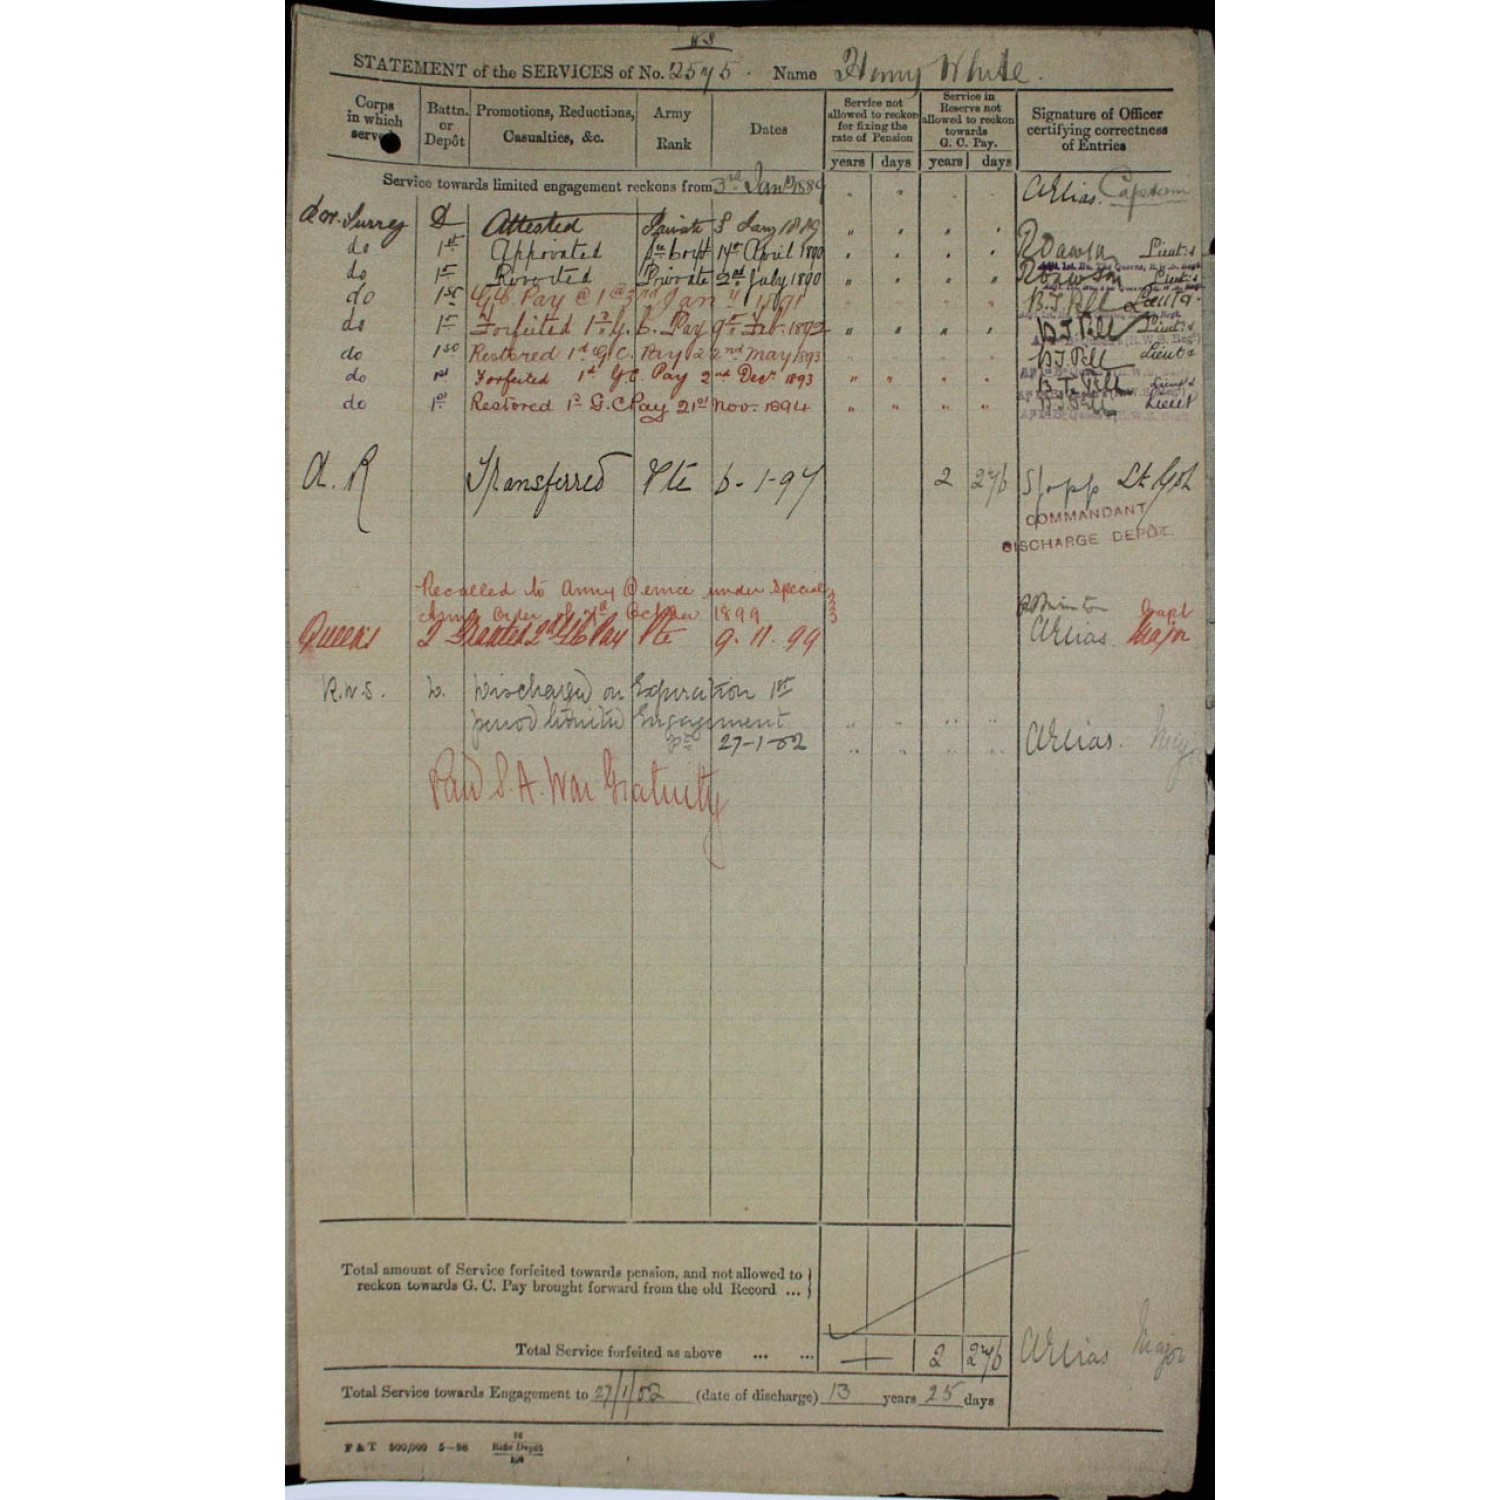 STATEMENT of the SERVICES of No. 2575. Name Henry White.
Corps in which served
Battn. or Depôt
Promotions, Reductions, Casualties, &c.
Army Rank
Dates
Service not allowed to reckon for fixing the rate of Pension
years days
Service in Reserve not allowed to reckon towards G. C. Pay.
years days
Signature of Officer certifying correctness of Entries
Service towards limited engagement reckons from 3rd Jany 1889 " " " " Captain
Surrey D Attested Private 3 Jany 1889 " " " "
do 1st Appointed 14th April 1890 " " " " Lieut:
do 1st Reverted Private 2nd July 1890 " " " " Lieut:
do 1st G.C. Pay @ 1d 3rd Jany 1891 " " " "
do 1st Forfeited 1st G. C. Pay 9th Feb. 1892 " " " " Lieut:
do 1st Restored 1st G.C. Pay 22nd May 1893 " " " " Lieut:
do 1st Forfeited 1st G.C. Pay 2nd Decr 1893 " " " " Lieut:
do 1st Restored 1st G.C Pay 21st Nov. 1894 " " " " Lieut
A. R Transferred Pte 6-1-97 2 276 Lt Col
COMMANDANT
DISCHARGE DEPÔT.
Recalled to Army Service under Special
Army Order of October 1899 Capt
Queens 2 Granted 2nd G C Pay Pte 9.11.99 Major
R.W.S. Discharged on Expiration 1st
period limited Engagement " " " "
Pte 27-1-02 " " " " Major
Paid S.A. War Gratuity
Total amount of Service forfeited towards pension, and not allowed to
reckon towards G. C. Pay brought forward from the old Record ...
Total Service forfeited as above ... ... 2 276 Major
Total Service towards Engagement to 27/1/02 (date of discharge) 13 years 25 days
F & T 500,000 5—88